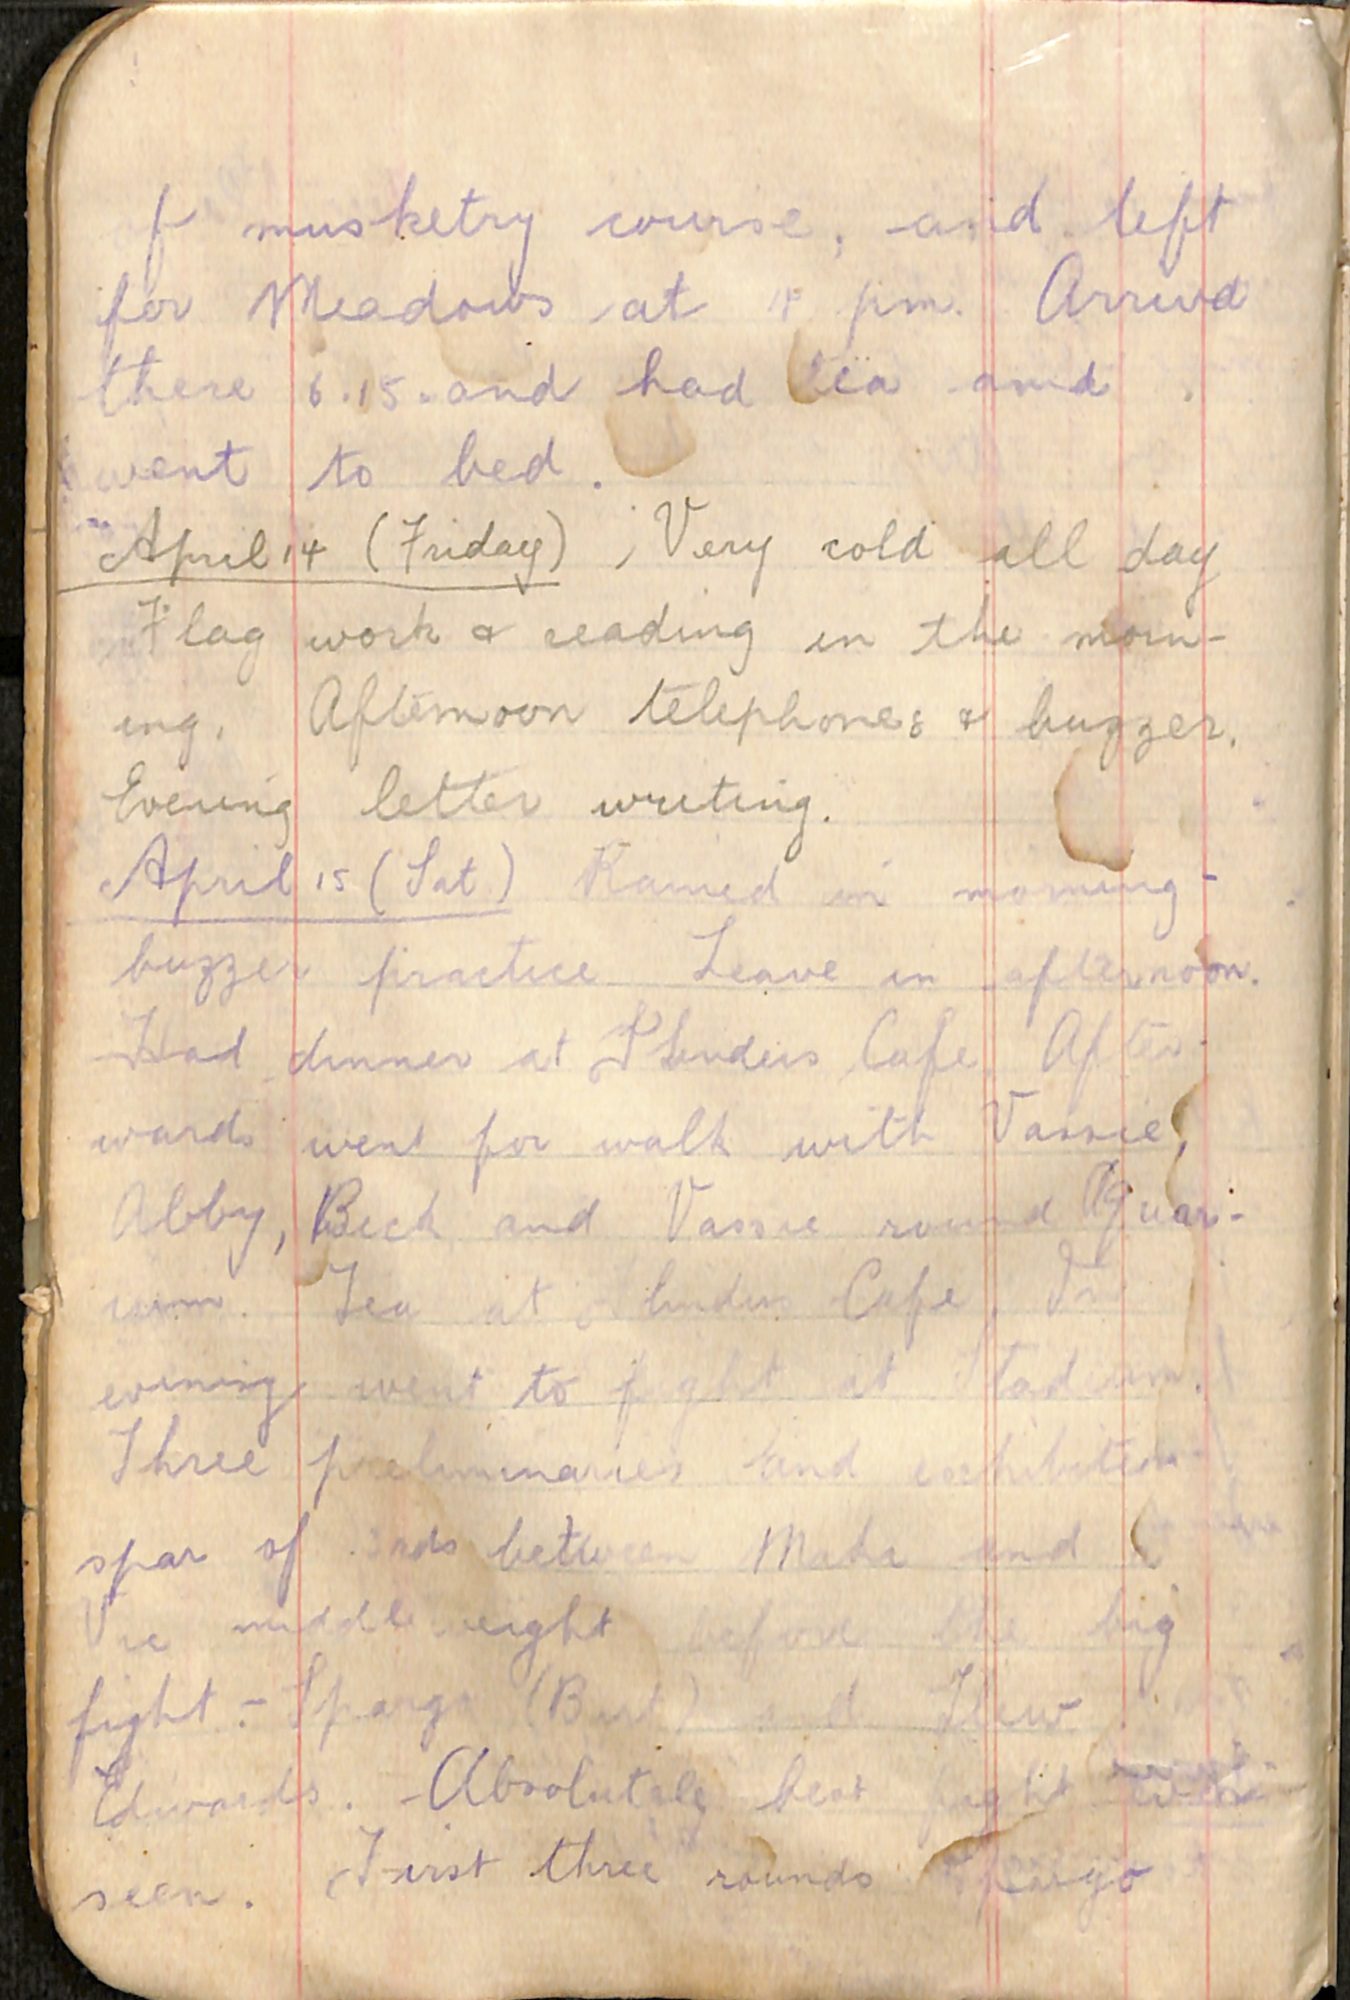 of musketry course, and left
for Meadows at pm. Arrived
there 6.15. and had tea and
went to bed.
April 14 (Friday) ; Very cold all day
Flag work & reading in the morn-
ing. Afternoon telephones & buzzer.
Evening letter writing.
April 15 (Sat.) Rained in morning -
buzzer practice Leave in afternoon.
Had dinner at Flinders Cafe. After-
wards went for walk with Vassie,
Abby, Beck and Vassie round Aquar-
ium. Tea at Flinders Cafe. In
evening went to fight at Stadium.
Three preliminaries and exhibition
spar of 3 rds between and a
Vic middleweight before the big
fight - Spargo (Bert) and Llew
Edwards. Absolutely best fight
seen. First three rounds Spargo